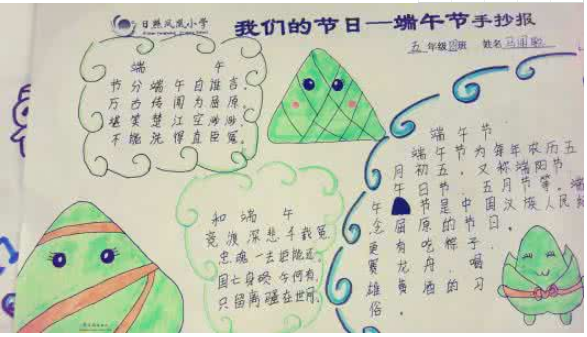 日照凤凰小学
我们的节日—端午节手抄报
五年级 班 姓名
端 午
节分端午自谁言,
万古传闻为屈原。
堪笑楚江空渺渺,
不能洗得直臣冤。
和端午
竞渡深悲千载冤,
忠魂一去讵能还。
国亡身殒今何有,
只留离骚在世间。
端午节
端午节为每年农历五
月初五,又称端阳节
午日节、五月节等。端
午节是中国汉族人民纪
念屈原的节日。
更有吃粽子,
赛龙舟,喝
雄黄酒的习
俗。